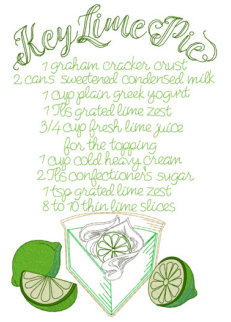 Key Lime Pie
1 graham cracker crust
2 cans sweetened condensed milk
1 cup plain greek yogurt
1 Tbs grated lime zest
3/4 cup fresh lime juice
for the topping
1 cup cold heavy cream
2 Tbs confectioner's sugar
1 tsp grated lime zest
8 to 10 thin lime slices